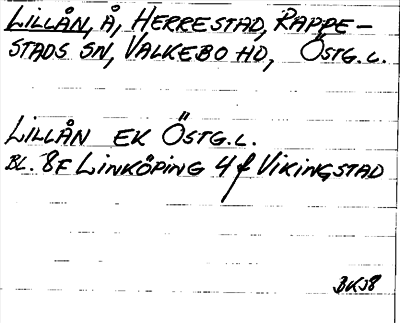 LILLÅN, Å, HERRESTAD, RAPPE-
STADS SN, VALKEBO HD, ÖSTG.L.
LILLÅN EK ÖSTG.L.
BL. 8F LINKÖPING 4f VIKINGSTAD
BKJ8